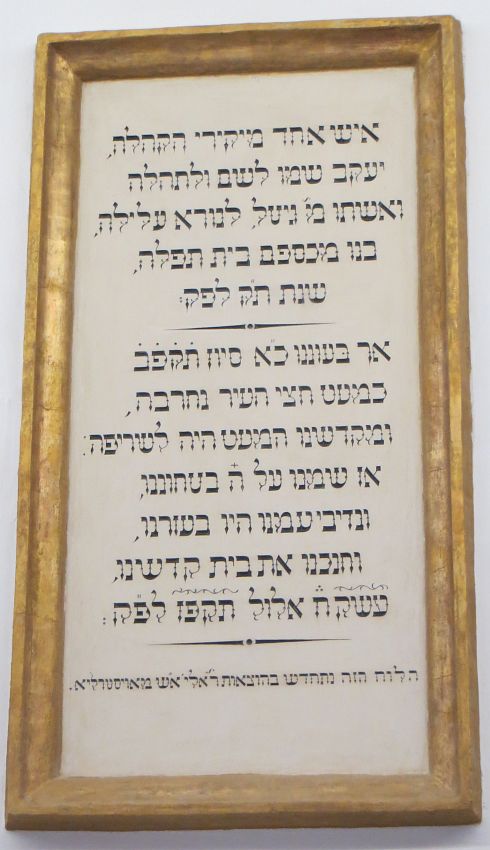 איש אחד מיקירי הקהלה,
יעקב שמו לשם ולתהלה
ואשתו מ׳ ניטל, לנורא עלילה,
בנו מכספם בית תפלה,
שנת תק לפק:
אך בעונינו כ״א סיון תקפב
כמעט חצי העיר נחרבה,
ומקדשינו המעט היה לשריפה:
אז שמנו על ה׳ בטחוננו,
ונדיבי עמנו היו בעזרנו,
וחנכנו את בית קדשינו,
עשק״ח אלול תקפז לפ״ק:
הלוח הזה נתחדש בהוצאות ר׳ אלי׳ אש מאוסטרליא.